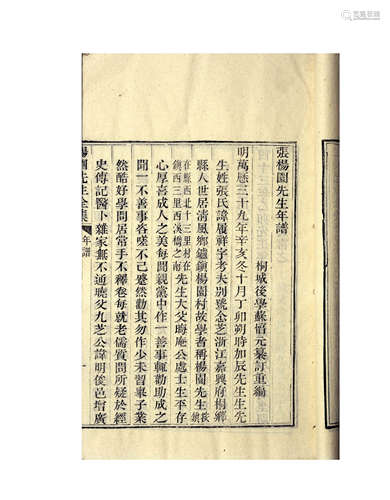 張楊園先生年譜
桐城後學蘇惇元纂訂重編
明萬歷三十九年辛亥冬十月丁卯朔時加辰先生生先
生姓張氏諱履祥字考夫別號念芝浙江嘉興府桐鄉
縣人世居清風鄉鑪鎮楊園村故學者稱楊園先生
在縣西北十三里村在
鎮西三里西溪橋之南
先生大父晦庵公處士生平存
心厚喜成人之美每聞親黨中作一善事輒勸助成之
聞一不善事咨嗟不已蹙然勸其勿作少未習舉子業
然酷好學問居常手不釋卷每就老儒質問所疑於經
史傳記醫卜雜家無不通曉父九芝公諱明俊邑增廣
楊園先生全集
年譜